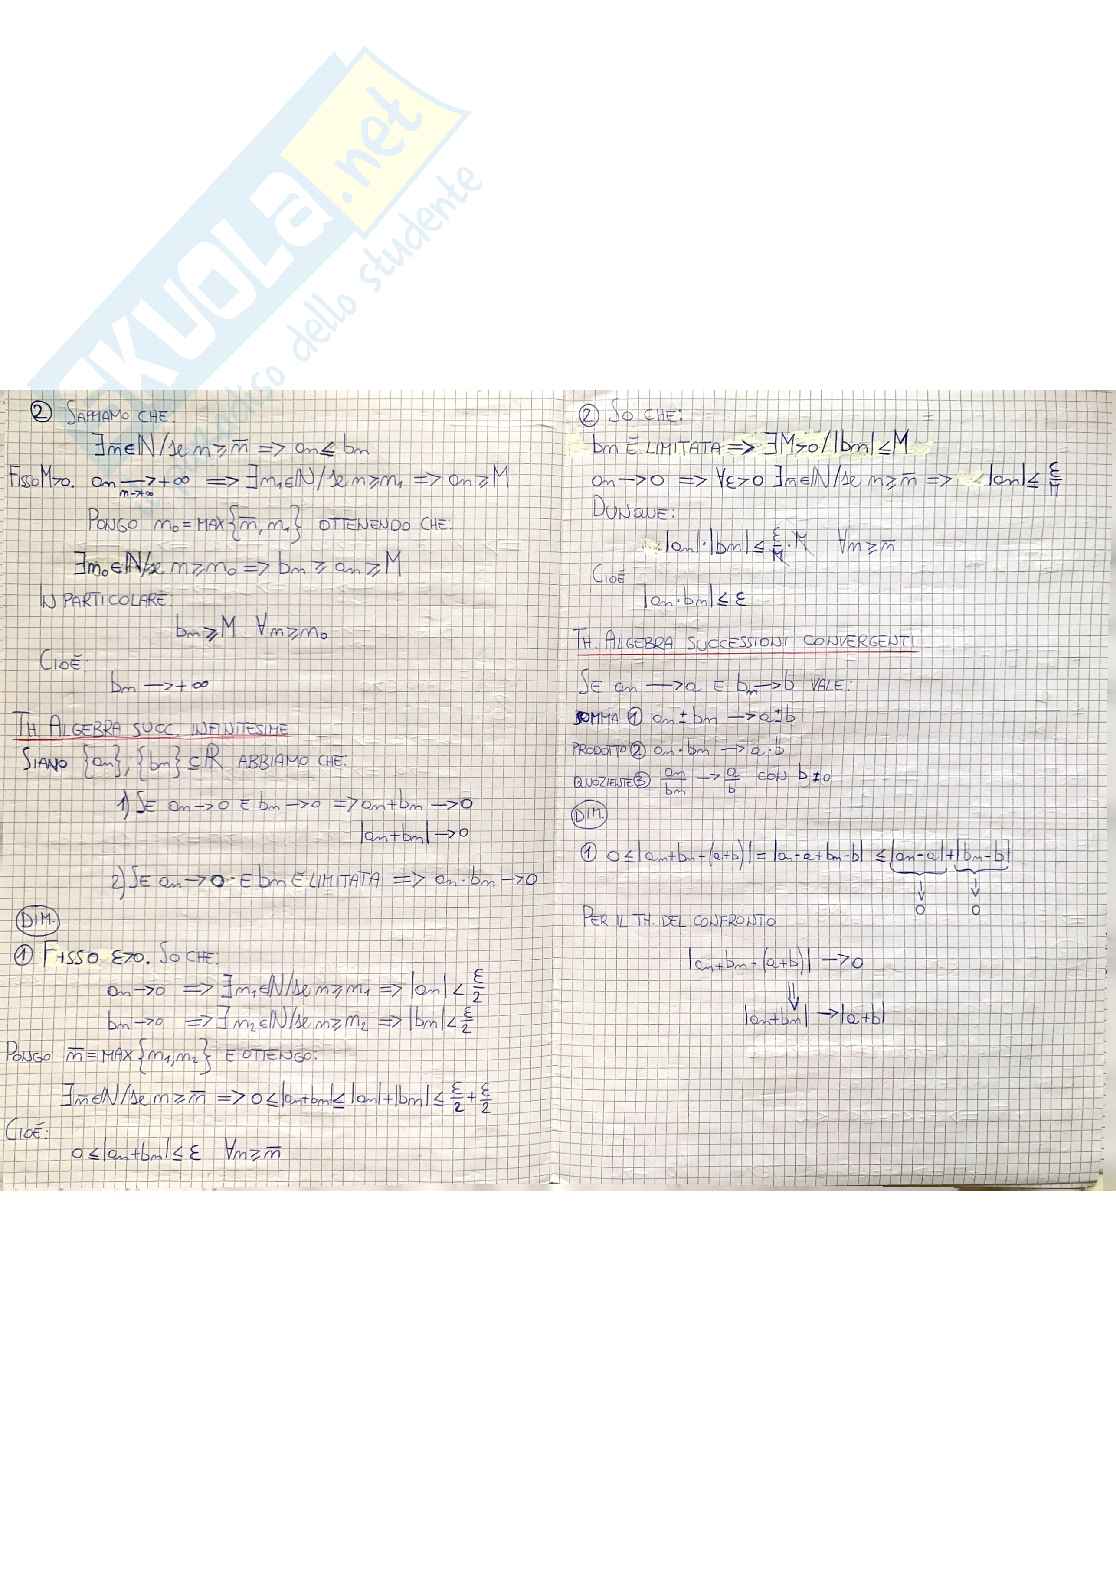 SKUOLA.net
paradiso dello studente
② SAPPIAMO CHE:
∃n̅∈ℕ/se n≥n̅ => an≤bn
FISSO M>0. an → +∞ => ∃n₁∈ℕ/se n≥n₁ => an≥M
n→+∞
PONGO n₀=MAX{n̅,n₁} OTTENENDO CHE:
∃n₀∈ℕ/se n≥n₀ => bn≥an≥M
IN PARTICOLARE:
bn≥M ∀n≥n₀
CIOÈ:
bn → +∞
TH. ALGEBRA SUCC. INFINITESIME
SIANO {an},{bn}⊆ℝ ABBIAMO CHE:
1) SE an→0 E bn→0 => an+bn→0
|an+bn|→0
2) SE an→0 E bn È LIMITATA => an·bn→0
DIM.
① FISSO ε>0. SO CHE:
an→0 => ∃n₁∈ℕ/se n≥n₁ => |an|<ε/2
bn→0 => ∃n₂∈ℕ/se n≥n₂ => |bn|<ε/2
PONGO n̅=MAX{n₁,n₂} E OTTENGO:
∃n̅∈ℕ/se n≥n̅ => 0≤|an+bn|≤|an|+|bn|≤ε/2+ε/2
CIOÈ:
0≤|an+bn|≤ε ∀n≥n̅
② SO CHE:
bn È LIMITATA => ∃M>0/|bn|≤M
an→0 => ∀ε>0 ∃n̅∈ℕ/se n≥n̅ => |an|≤ε/M
DUNQUE:
|an|·|bn|≤ε/M·M ∀n≥n̅
CIOÈ
|an·bn|≤ε
TH. ALGEBRA SUCCESSIONI CONVERGENTI
SE an→a E bn→b VALE:
SOMMA ① an±bn→a±b
PRODOTTO ② an·bn→a·b
QUOZIENTE ③ an/bn→a/b CON b≠0
DIM.
① 0≤|an+bn-(a+b)|=|an-a+bn-b|≤|an-a|+|bn-b|
↓ ↓
0 0
PER IL TH. DEL CONFRONTO
|an+bn-(a+b)|→0
⇓
|an+bn|→|a+b|